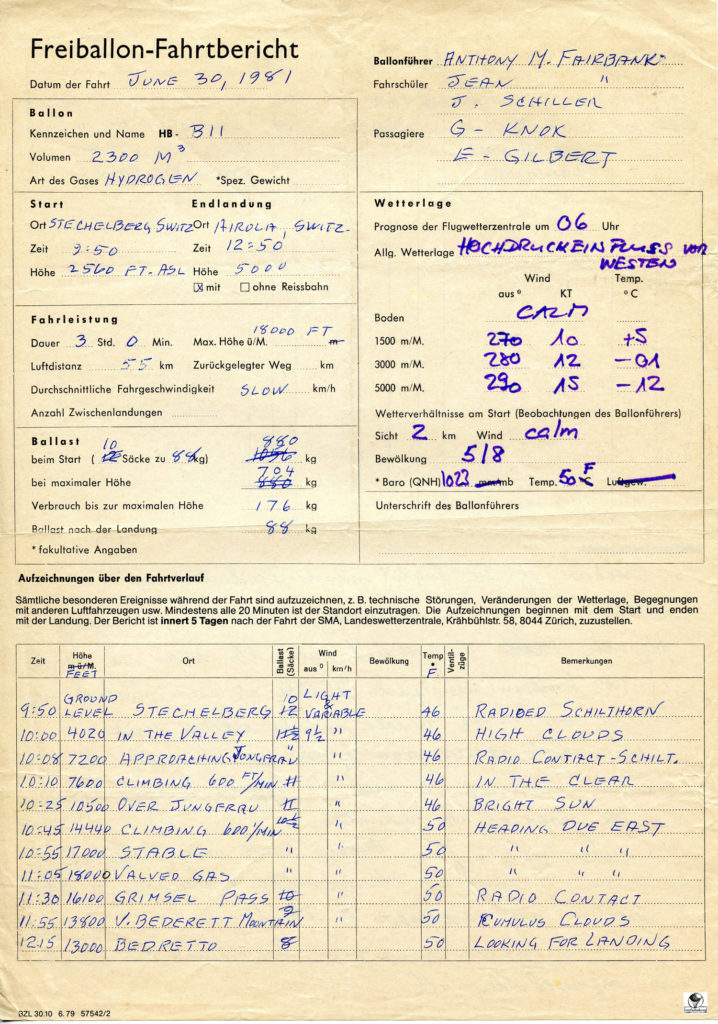 Freiballon-Fahrtbericht
Datum der Fahrt JUNE 30, 1981
Ballonführer ANTHONY M. FAIRBANK
Fahrschüler JEAN "
J. SCHILLER
Passagiere G - KNOK
E - GILBERT
Ballon
Kennzeichen und Name HB - B11
Volumen 2300 M³
Art des Gases HYDROGEN *Spez. Gewicht
Start Endlandung
Ort STECHELBERG SWITZ Ort AIROLA, SWITZ.
Zeit 9:50 Zeit 12:50
Höhe 2560 FT. ASL Höhe 5000
☒ mit ☐ ohne Reissbahn
Wetterlage
Prognose der Flugwetterzentrale um 06 Uhr
Allg. Wetterlage HOCHDRUCKEINFLUSS VON
WESTEN
Wind Temp.
aus° KT °C
Boden CALM
1500 m/M. 270 10 +5
3000 m/M. 280 12 -01
5000 m/M. 290 15 -12
Fahrleistung
Dauer 3 Std. 0 Min. Max. Höhe ü/M. 18000 FT m
Luftdistanz 55 km Zurückgelegter Weg km
Durchschnittliche Fahrgeschwindigkeit SLOW km/h
Anzahl Zwischenlandungen
Wetterverhältnisse am Start (Beobachtungen des Ballonführers)
Sicht 2 km Wind calm
Bewölkung 5/8
* Baro (QNH) 1023 mm/mb Temp. 50 F °C Luftgew.
Unterschrift des Ballonführers
Ballast
beim Start ( 10 12 Säcke zu 88 kg) 880 1056 kg
bei maximaler Höhe 704 880 kg
Verbrauch bis zur maximalen Höhe 176 kg
Ballast nach der Landung 88 kg
* fakultative Angaben
Aufzeichnungen über den Fahrtverlauf
Sämtliche besonderen Ereignisse während der Fahrt sind aufzuzeichnen, z. B. technische Störungen, Veränderungen der Wetterlage, Begegnungen
mit anderen Luftfahrzeugen usw. Mindestens alle 20 Minuten ist der Standort einzutragen. Die Aufzeichnungen beginnen mit dem Start und enden
mit der Landung. Der Bericht ist innert 5 Tagen nach der Fahrt der SMA, Landeswetterzentrale, Krähbühlstr. 58, 8044 Zürich, zuzustellen.
Zeit Höhe m ü/M. FEET Ort Ballast (Säcke) Wind aus° km/h Bewölkung Temp ° F. Ventilzüge Bemerkungen
9:50 GROUND LEVEL STECHELBERG 10 12 LIGHT & VARIABLE 46 RADIOED SCHILTHORN
10:00 4020 IN THE VALLEY 11½ 9½ " 46 HIGH CLOUDS
10:08 7200 APPROACHING JUNGFRAU " " 46 RADIO CONTACT - SCHILT.
10:10 7600 CLIMBING 600 FT/MIN 11 " 46 IN THE CLEAR
10:25 10500 OVER JUNGFRAU 11 " 46 BRIGHT SUN
10:45 14440 CLIMBING 600'/MIN 10½ " 50 HEADING DUE EAST
10:55 17000 STABLE " " 50 " " "
11:05 18000 VALVED GAS " " 50 " " "
11:30 16100 GRIMSEL PASS 10 " 50 RADIO CONTACT
11:55 13800 V. BEDERETT MOUNTAIN 9 " 50 CUMULUS CLOUDS
12:15 13000 BEDRETTO 8 50 LOOKING FOR LANDING
BZL 30.10 6.79 57542/2